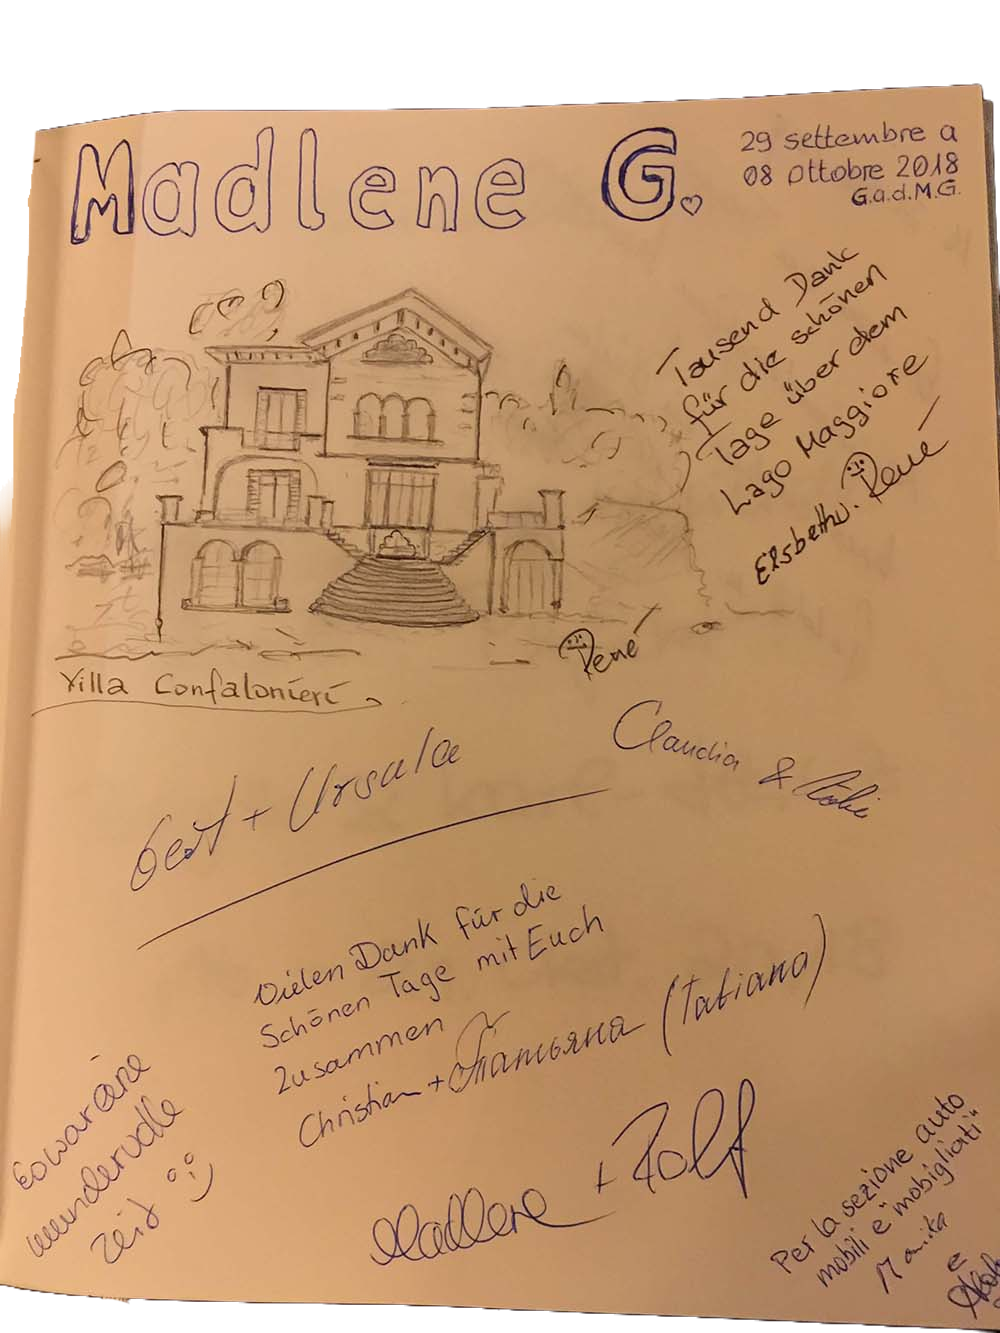 Madlene G.
29 settembre a
08 ottobre 2018
G.a.d.M.G.
Tausend Dank
für die schönen
Tage über dem
Lago Maggiore
Elsbeth u. René
René
Villa Confalonieri
Gert + Ursula
Claudia &
Vielen Dank für die
Schönen Tage mit Euch
zusammen
Christian + Татьяна (Tatiana)
Es war eine
wundervolle
Zeit
Madlene + Rolf
Per la sezione auto
mobili e "mobigliati"
Marika
e